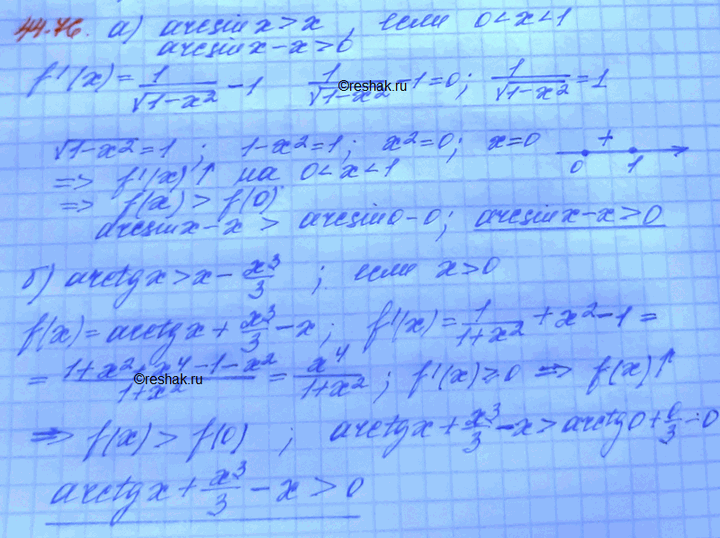 44.76. а) arcsin x > x, если 0 < x < 1
arcsin x - x > 0
f'(x) = 1/√(1-x²) - 1   1/√(1-x²) - 1 = 0; 1/√(1-x²) = 1
©reshak.ru
√(1-x²) = 1; 1-x² = 1; x² = 0; x = 0   0 + 1
=> f'(x) ↑ на 0 < x < 1
=> f(x) > f(0)
arcsin x - x > arcsin 0 - 0; arcsin x - x > 0
б) arctg x > x - x³/3; если x > 0
f(x) = arctg x + x³/3 - x; f'(x) = 1/(1+x²) + x² - 1 =
= (1+x²+x⁴-1-x²)/(1+x²) = x⁴/(1+x²); f'(x) ≥ 0 => f(x) ↑
©reshak.ru
=> f(x) > f(0); arctg x + x³/3 - x > arctg 0 + 0/3 - 0
arctg x + x³/3 - x > 0